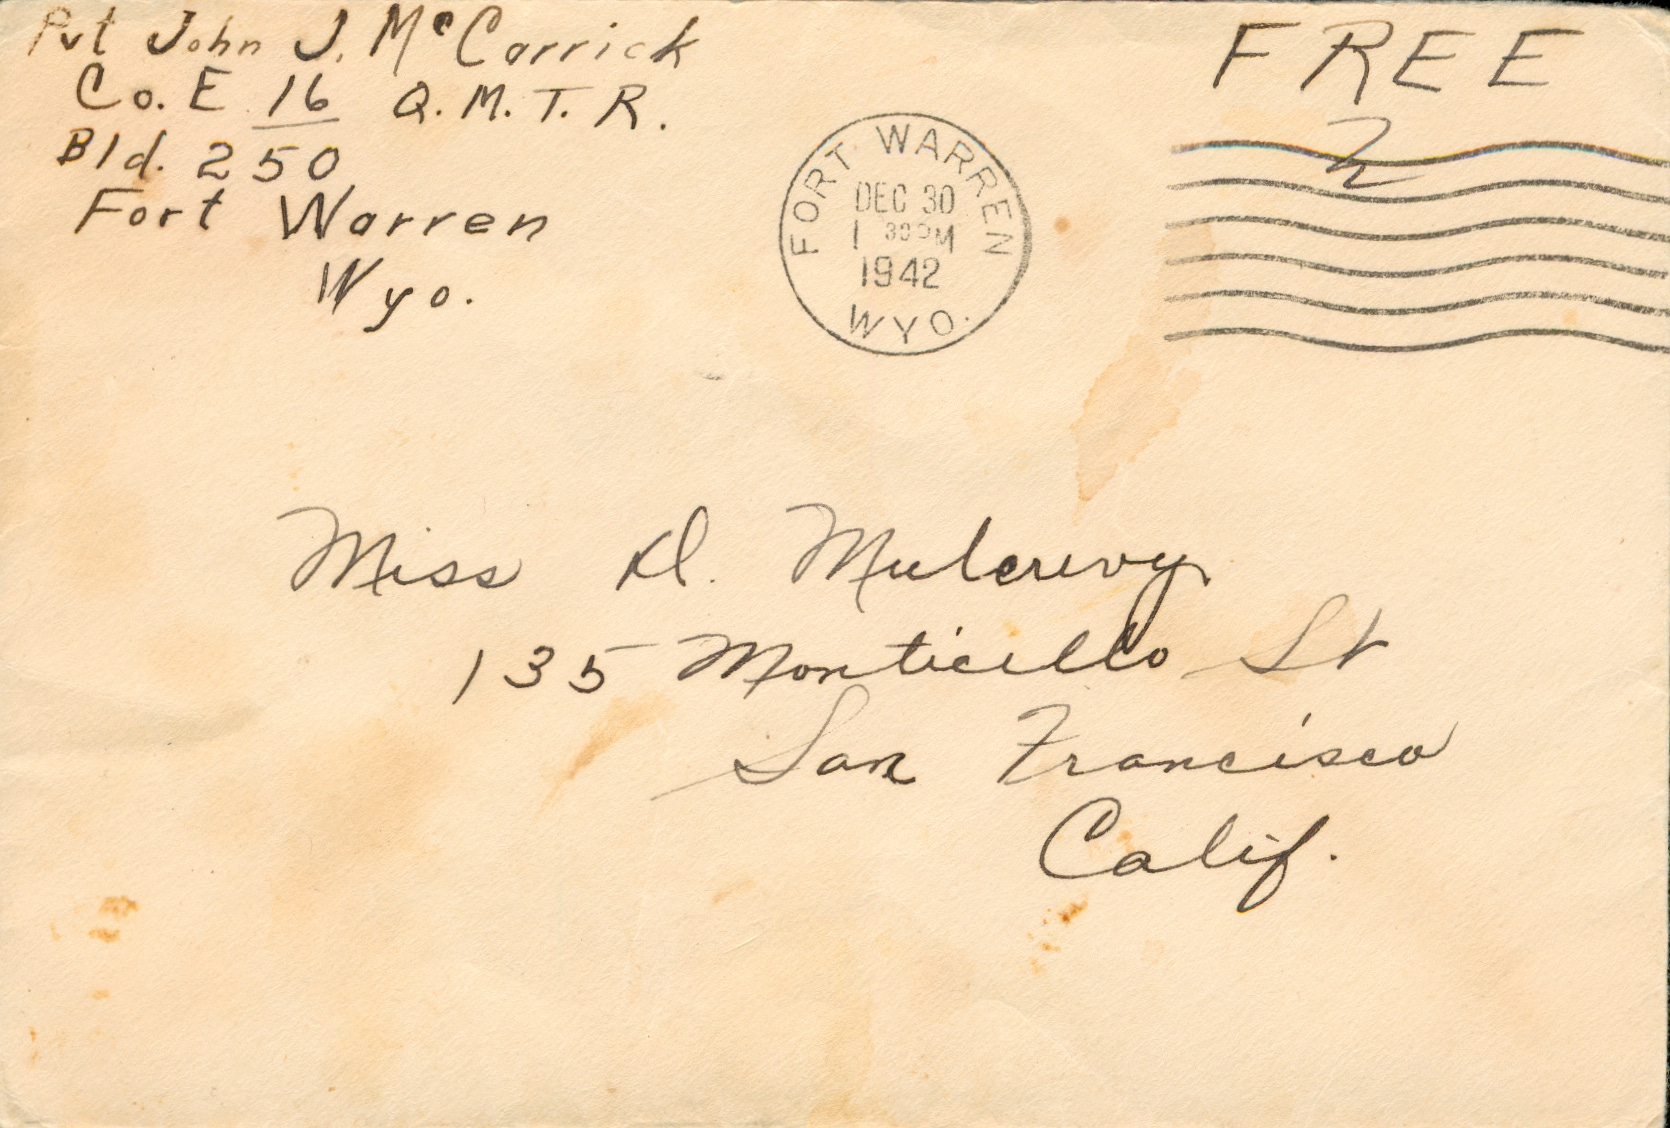 Pvt John J. McCarrick
Co. E 16 Q.M.T.R.
Bld. 250
Fort Warren
Wyo.
FREE
2
FORT WARREN
DEC 30
1 30 PM
1942
WYO.
Miss D. Mulcrevy
135 Monticello St
San Francisco
Calif.